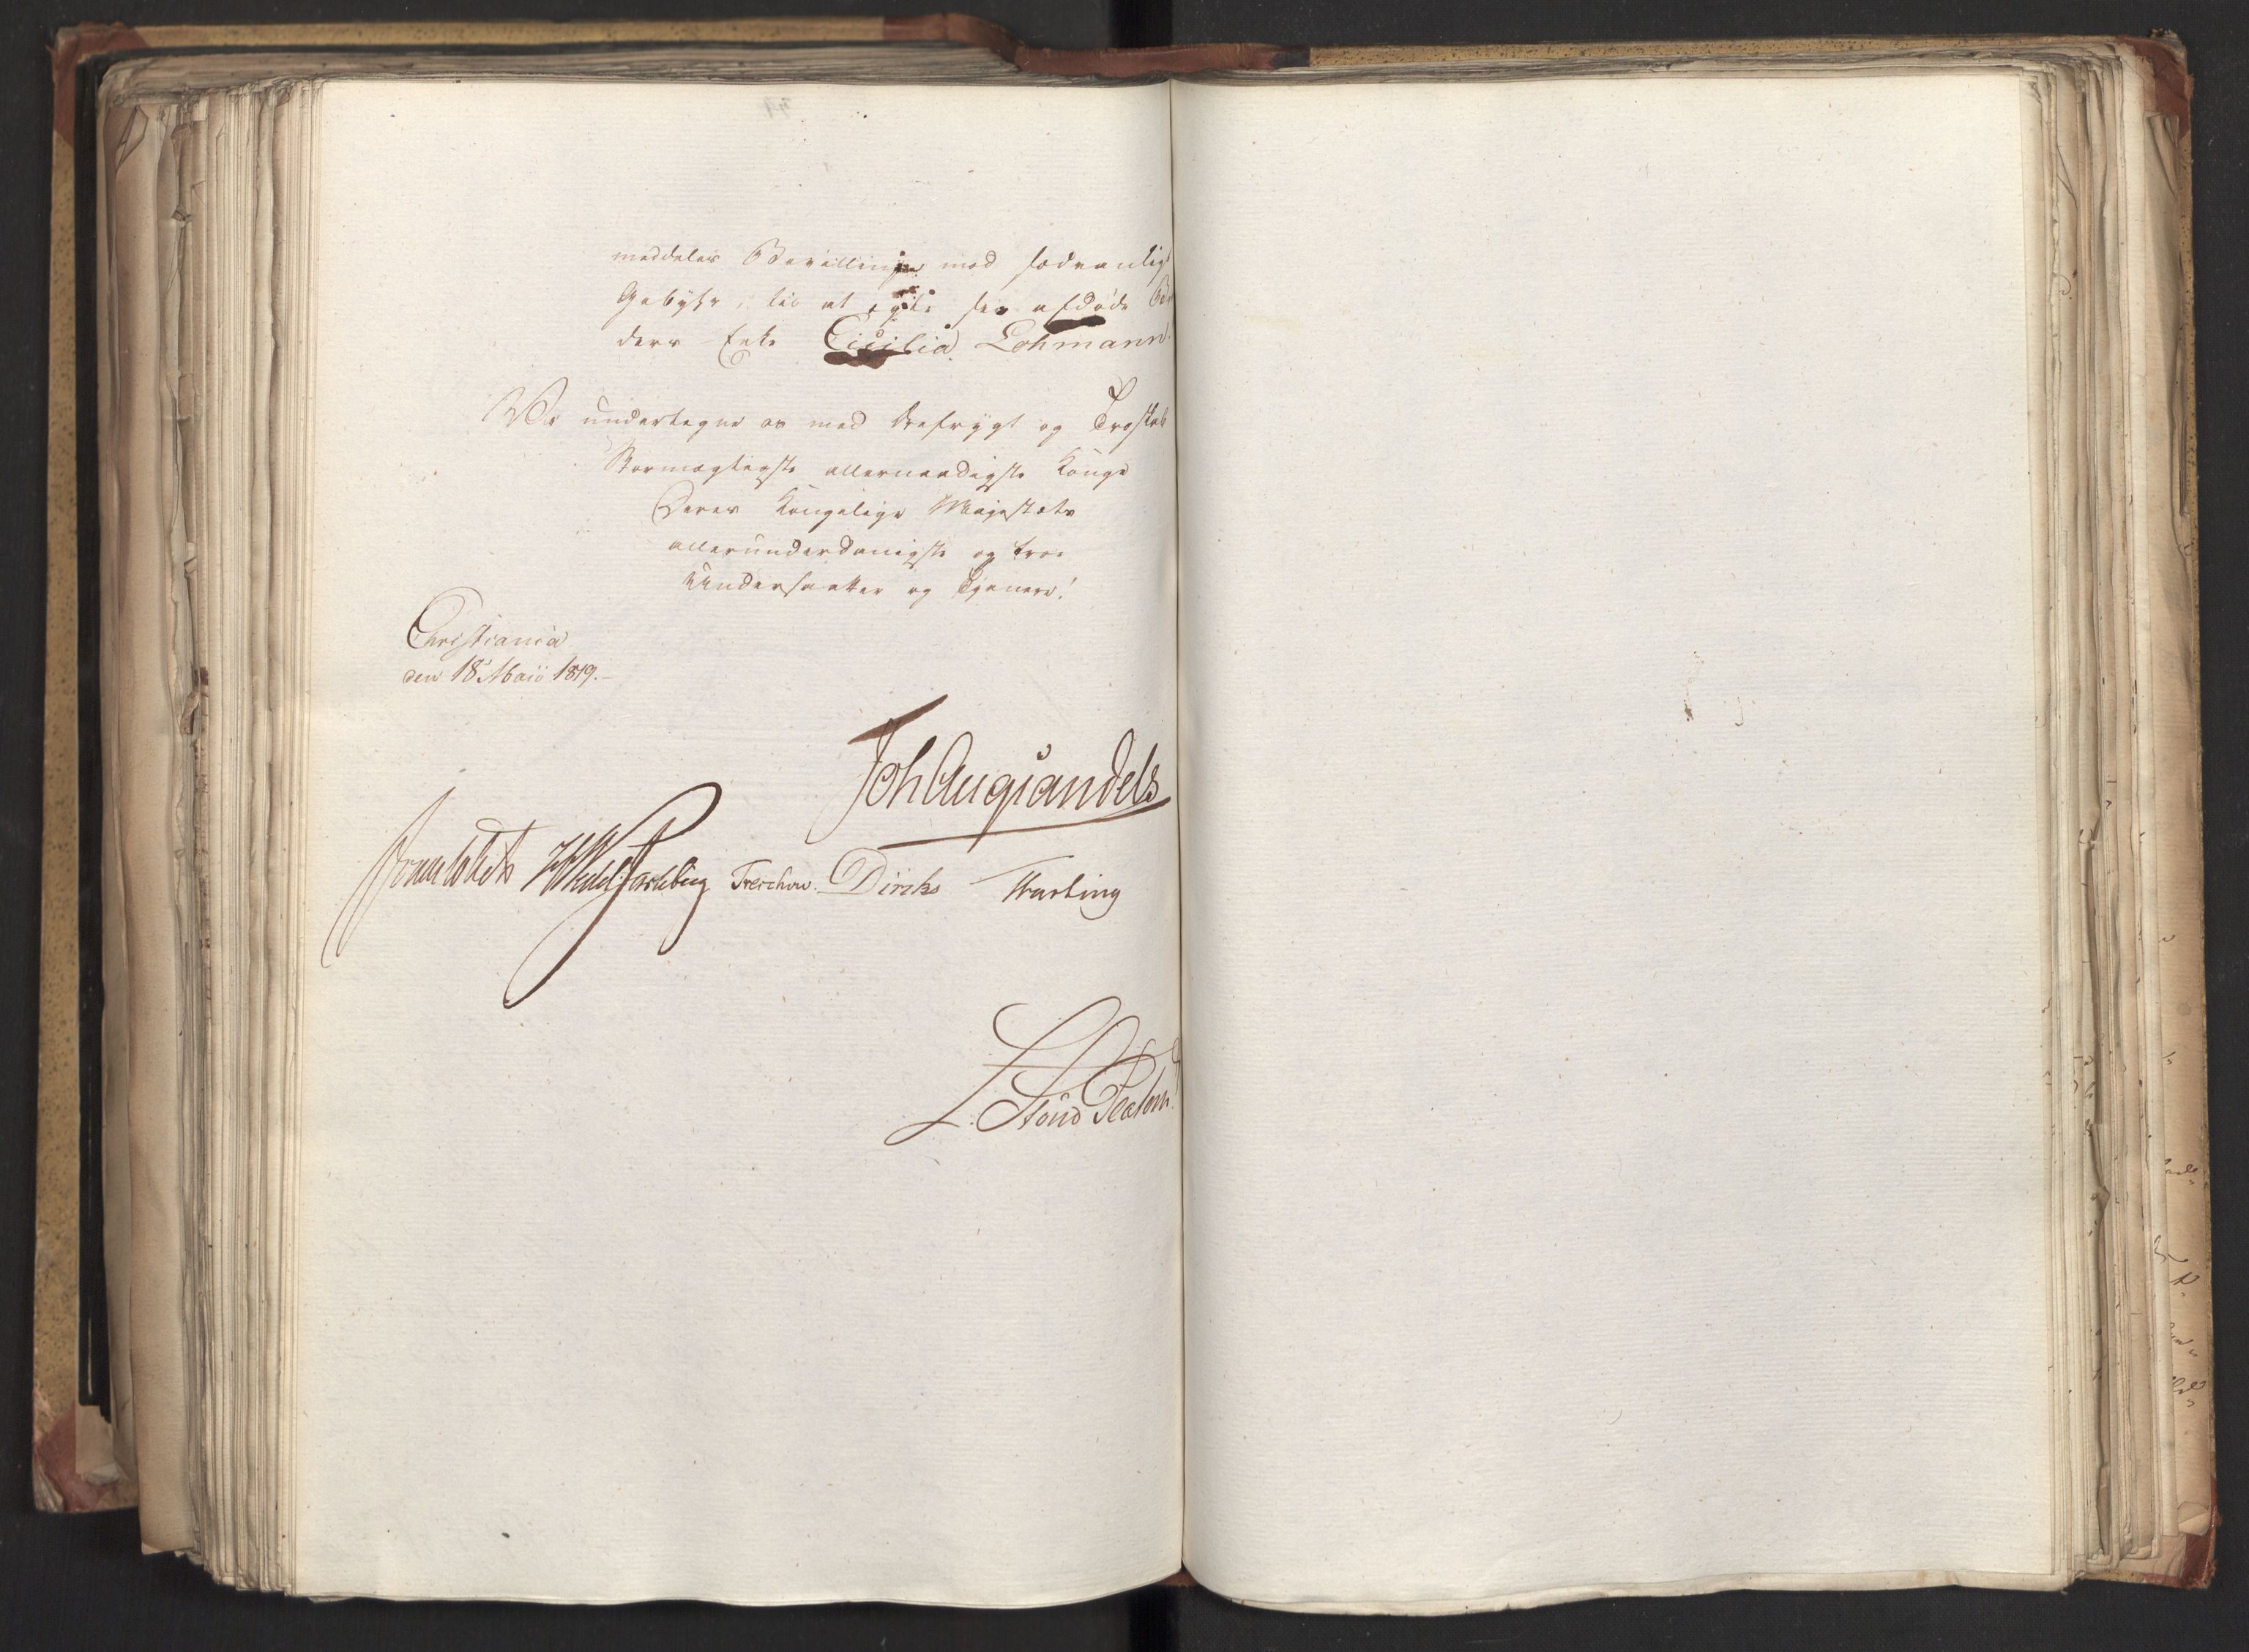 meddeles Bevillinger mod sædvanligt
Gebyhr, til at egte sin afdøde Bro
ders Enke Cicilia Lohmann.
Vi undertegne os med Ærefrygt og Troskab
Stormægtigste allernaadigste Konge
Deres Kongelige Majestæts
allerunderdanigste og troe
Undersaatter og Tjenere!
Christiania
den 18de Maii 1819.
Joh Aug Sandels
HWedel Jarlsberg Treschow. Diriks
L. Stoud Platou